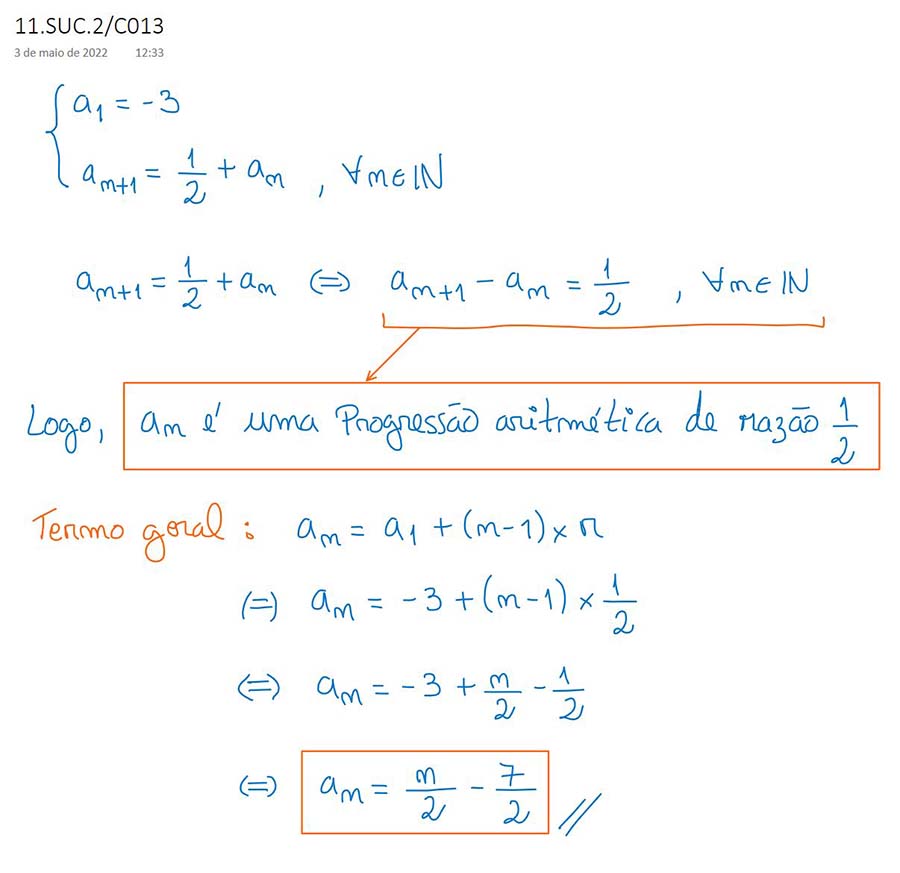 11.SUC.2/C013
3 de maio de 2022 12:33
{ a₁ = -3
aₙ₊₁ = 1/2 + aₙ , ∀n∈ℕ
aₙ₊₁ = 1/2 + aₙ (=) aₙ₊₁ - aₙ = 1/2 , ∀n∈ℕ
Logo, aₙ é uma Progressão aritmética de razão 1/2
Termo geral : aₙ = a₁ + (n-1) × r
(=) aₙ = -3 + (n-1) × 1/2
(=) aₙ = -3 + n/2 - 1/2
(=) aₙ = n/2 - 7/2 //